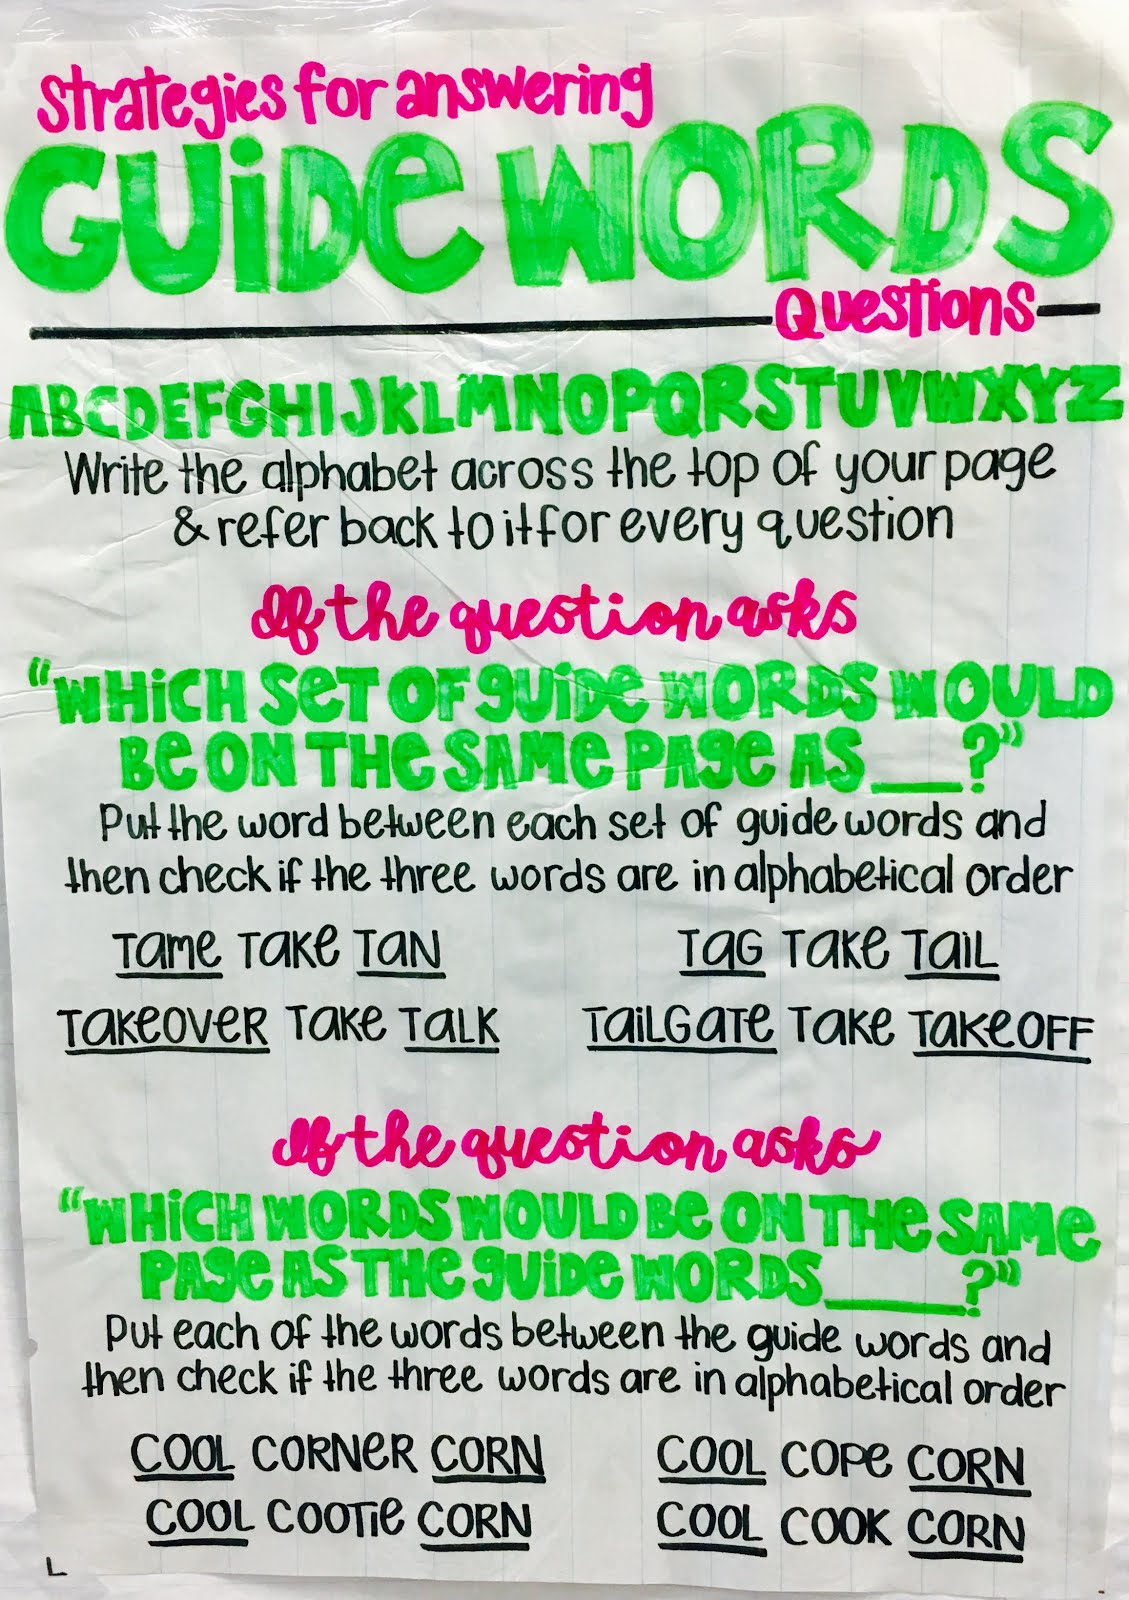 Strategies for answering
GUIDE WORDS
Questions
ABCDEFGHIJKLMNOPQRSTUVWXYZ
Write the alphabet across the top of your page
& refer back to it for every question
If the question asks
"WHICH SET OF GUIDE WORDS WOULD
BE ON THE SAME PAGE AS ___?"
Put the word between each set of guide words and
then check if the three words are in alphabetical order
TAME TAKE TAN TAG TAKE TAIL
TAKEOVER TAKE TALK TAILGATE TAKE TAKEOFF
If the question asks
"WHICH WORDS WOULD BE ON THE SAME
PAGE AS THE GUIDE WORDS_____?"
Put each of the words between the guide words and
then check if the three words are in alphabetical order
COOL CORNER CORN COOL COPE CORN
COOL COOTIE CORN COOL COOK CORN
L